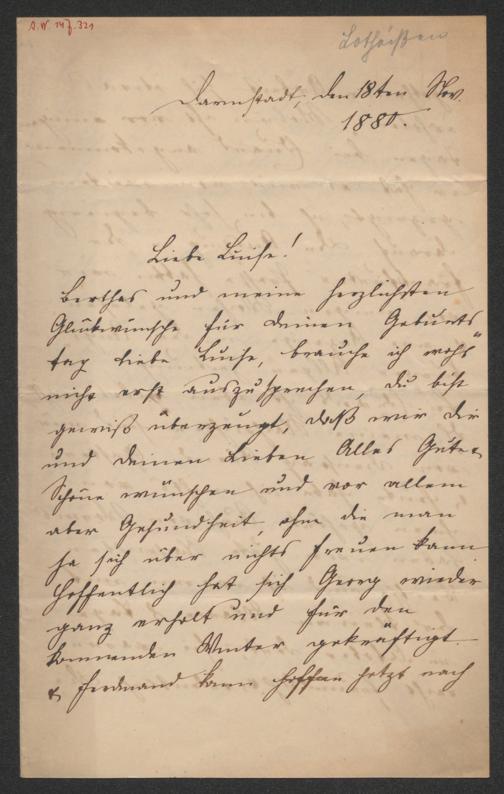 A.N. 147.321
Lotheißen
Darmstadt, den 18ten Nov.
1880.
Liebe Luise!
Berthas und meine herzlichsten
Glückwünsche für deinen Geburts
tag liebe Luise, brauche ich wohl
nicht erst auszusprechen, du bist
gewiß überzeugt, daß wir dir
und deinen Lieben Alles Gute &
Schöne wünschen und vor allem
aber Gesundheit, ohne die man
ja sich über nichts freuen kann
Hoffentlich hat sich Georg wieder
ganz erholt und für den
kommenden Winter gekräftigt
& Ferdinand kann hoffen jetzt nach